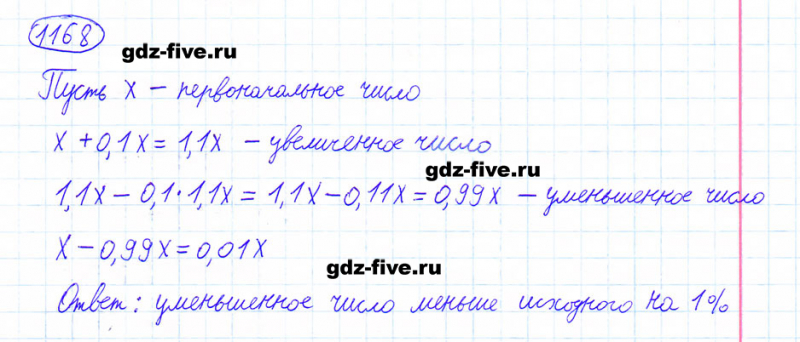 1168
gdz-five.ru
Пусть x – первоначальное число
x + 0,1x = 1,1x – увеличенное число
gdz-five.ru
1,1x – 0,1 · 1,1x = 1,1x – 0,11x = 0,99x – уменьшенное число
x – 0,99x = 0,01x
gdz-five.ru
Ответ: уменьшенное число меньше исходного на 1%